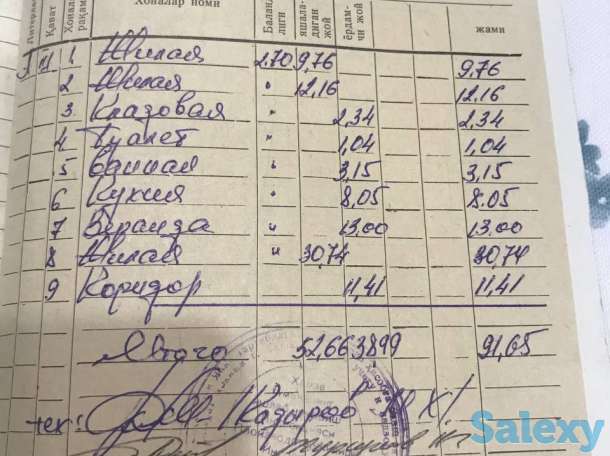 Қават Хонала рақам Хоналар номи Баланд лиги яшала- диган жой ёрдам- чи жой жами
I 1 Жилая 2,70 9,76 9,76
2 Жилая " 12,16 12,16
3 Кладовая " 2,34 2,34
4 Туалет " 1,04 1,04
5 Ванная " 3,15 3,15
6 Кухня " 8,05 8.05
7 Веранда " 13,00 13.00
8 Жилая " 30,74 30,74
9 Коридор 11,41 11,41
52,66 38,99 91,65
тек: Кадыров
Salexy